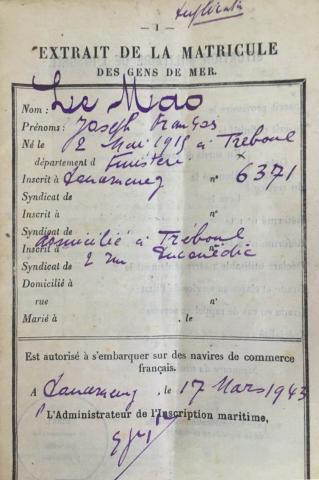 Duplicata
— 1 —
EXTRAIT DE LA MATRICULE
DES GENS DE MER.
Nom : Le Mao
Prénoms : Joseph François
Né le 2 Mai 1915 à Tréboul
département d Finistère
Inscrit à Douarnenez n° 6371
Syndicat de
Inscrit à n°
Syndicat de
domicilié à Tréboul
Inscrit à
Syndicat de 2 rue
Domicilié à
rue n°
Marié à , le
Est autorisé à s'embarquer sur des navires de commerce
français.
A Douarnenez, le 17 Mars 1943
L'Administrateur de l'Inscription maritime,